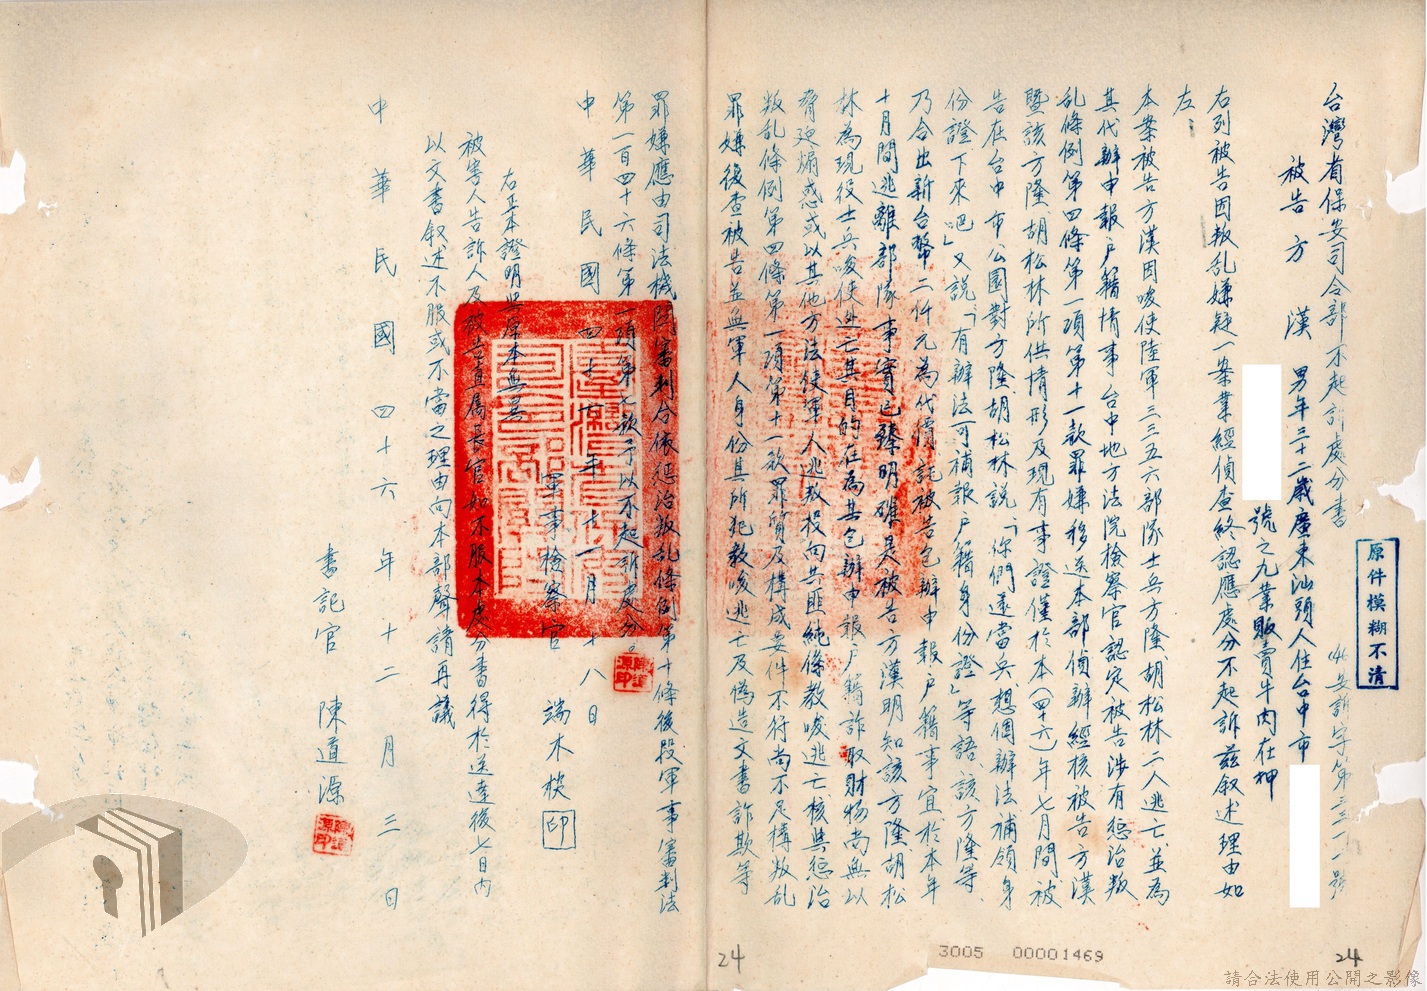 台灣省保安司令部不起訴處分書
安訴字第三三一一號
被告 方 漢 男年三十二歲廣東汕頭人住台中市
號之九業販賣牛肉在押
右列被告因叛乱嫌疑一案業經偵查終認應處分不起訴茲叙述理由如
左：
本案被告方漢因唆使陸軍三三五六部隊士兵方隆胡松林二人逃亡並為
其代辦申報户籍情事台中地方法院檢察官認定被告涉有惩治叛
乱條例第四條第一項第十一款罪嫌移送本部偵辦經核被告方漢
暨該方隆胡松林所供情形及現有事證僅於本(四十六)年七月間被
告在台中市公園對方隆胡松林說「你們逃當兵想個辦法補領身
份證下來吧」又說「有辦法可補報户籍身份證」等語該方隆等
乃合出新台幣二仟元為代價託被告包辦申報户籍事宜於本年
十月間逃離部隊事實已臻明確是被告方漢明知該方隆胡松
林為現役士兵唆使逃亡其目的在為其包辦申報户籍詐取財物尚無以
脅迫煽惑或以其他方法使軍人逃叛投向共匪純係教唆逃亡核與惩治
叛乱條例第四條第一項第十一款罪質及構成要件不符尚不足構叛乱
罪嫌後查被告並無軍人身份其所犯教唆逃亡及偽造文書詐欺等
罪嫌應由司法機關審判合依惩治叛乱條例第十條後段軍事審判法
第一百四十六條第一項第七款予以不起訴處分。
中華民國四十六年十一月十八日
軍事檢察官 端木棪 印
右正本證明與原本無異
被害人告訴人及被告直屬長官如不服本處分書得於送達後七日內
以文書叙述不服或不當之理由向本部聲請再議
中華民國四十六年十二月三日
書記官 陳道源
原件模糊不清
24
3005 00001469
24
請合法使用公開之影像